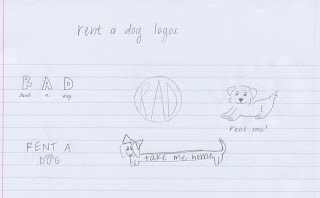 rent a dog logos
R A D
rent a dog
RAD
rent me!
RENT A
DOG
take me home